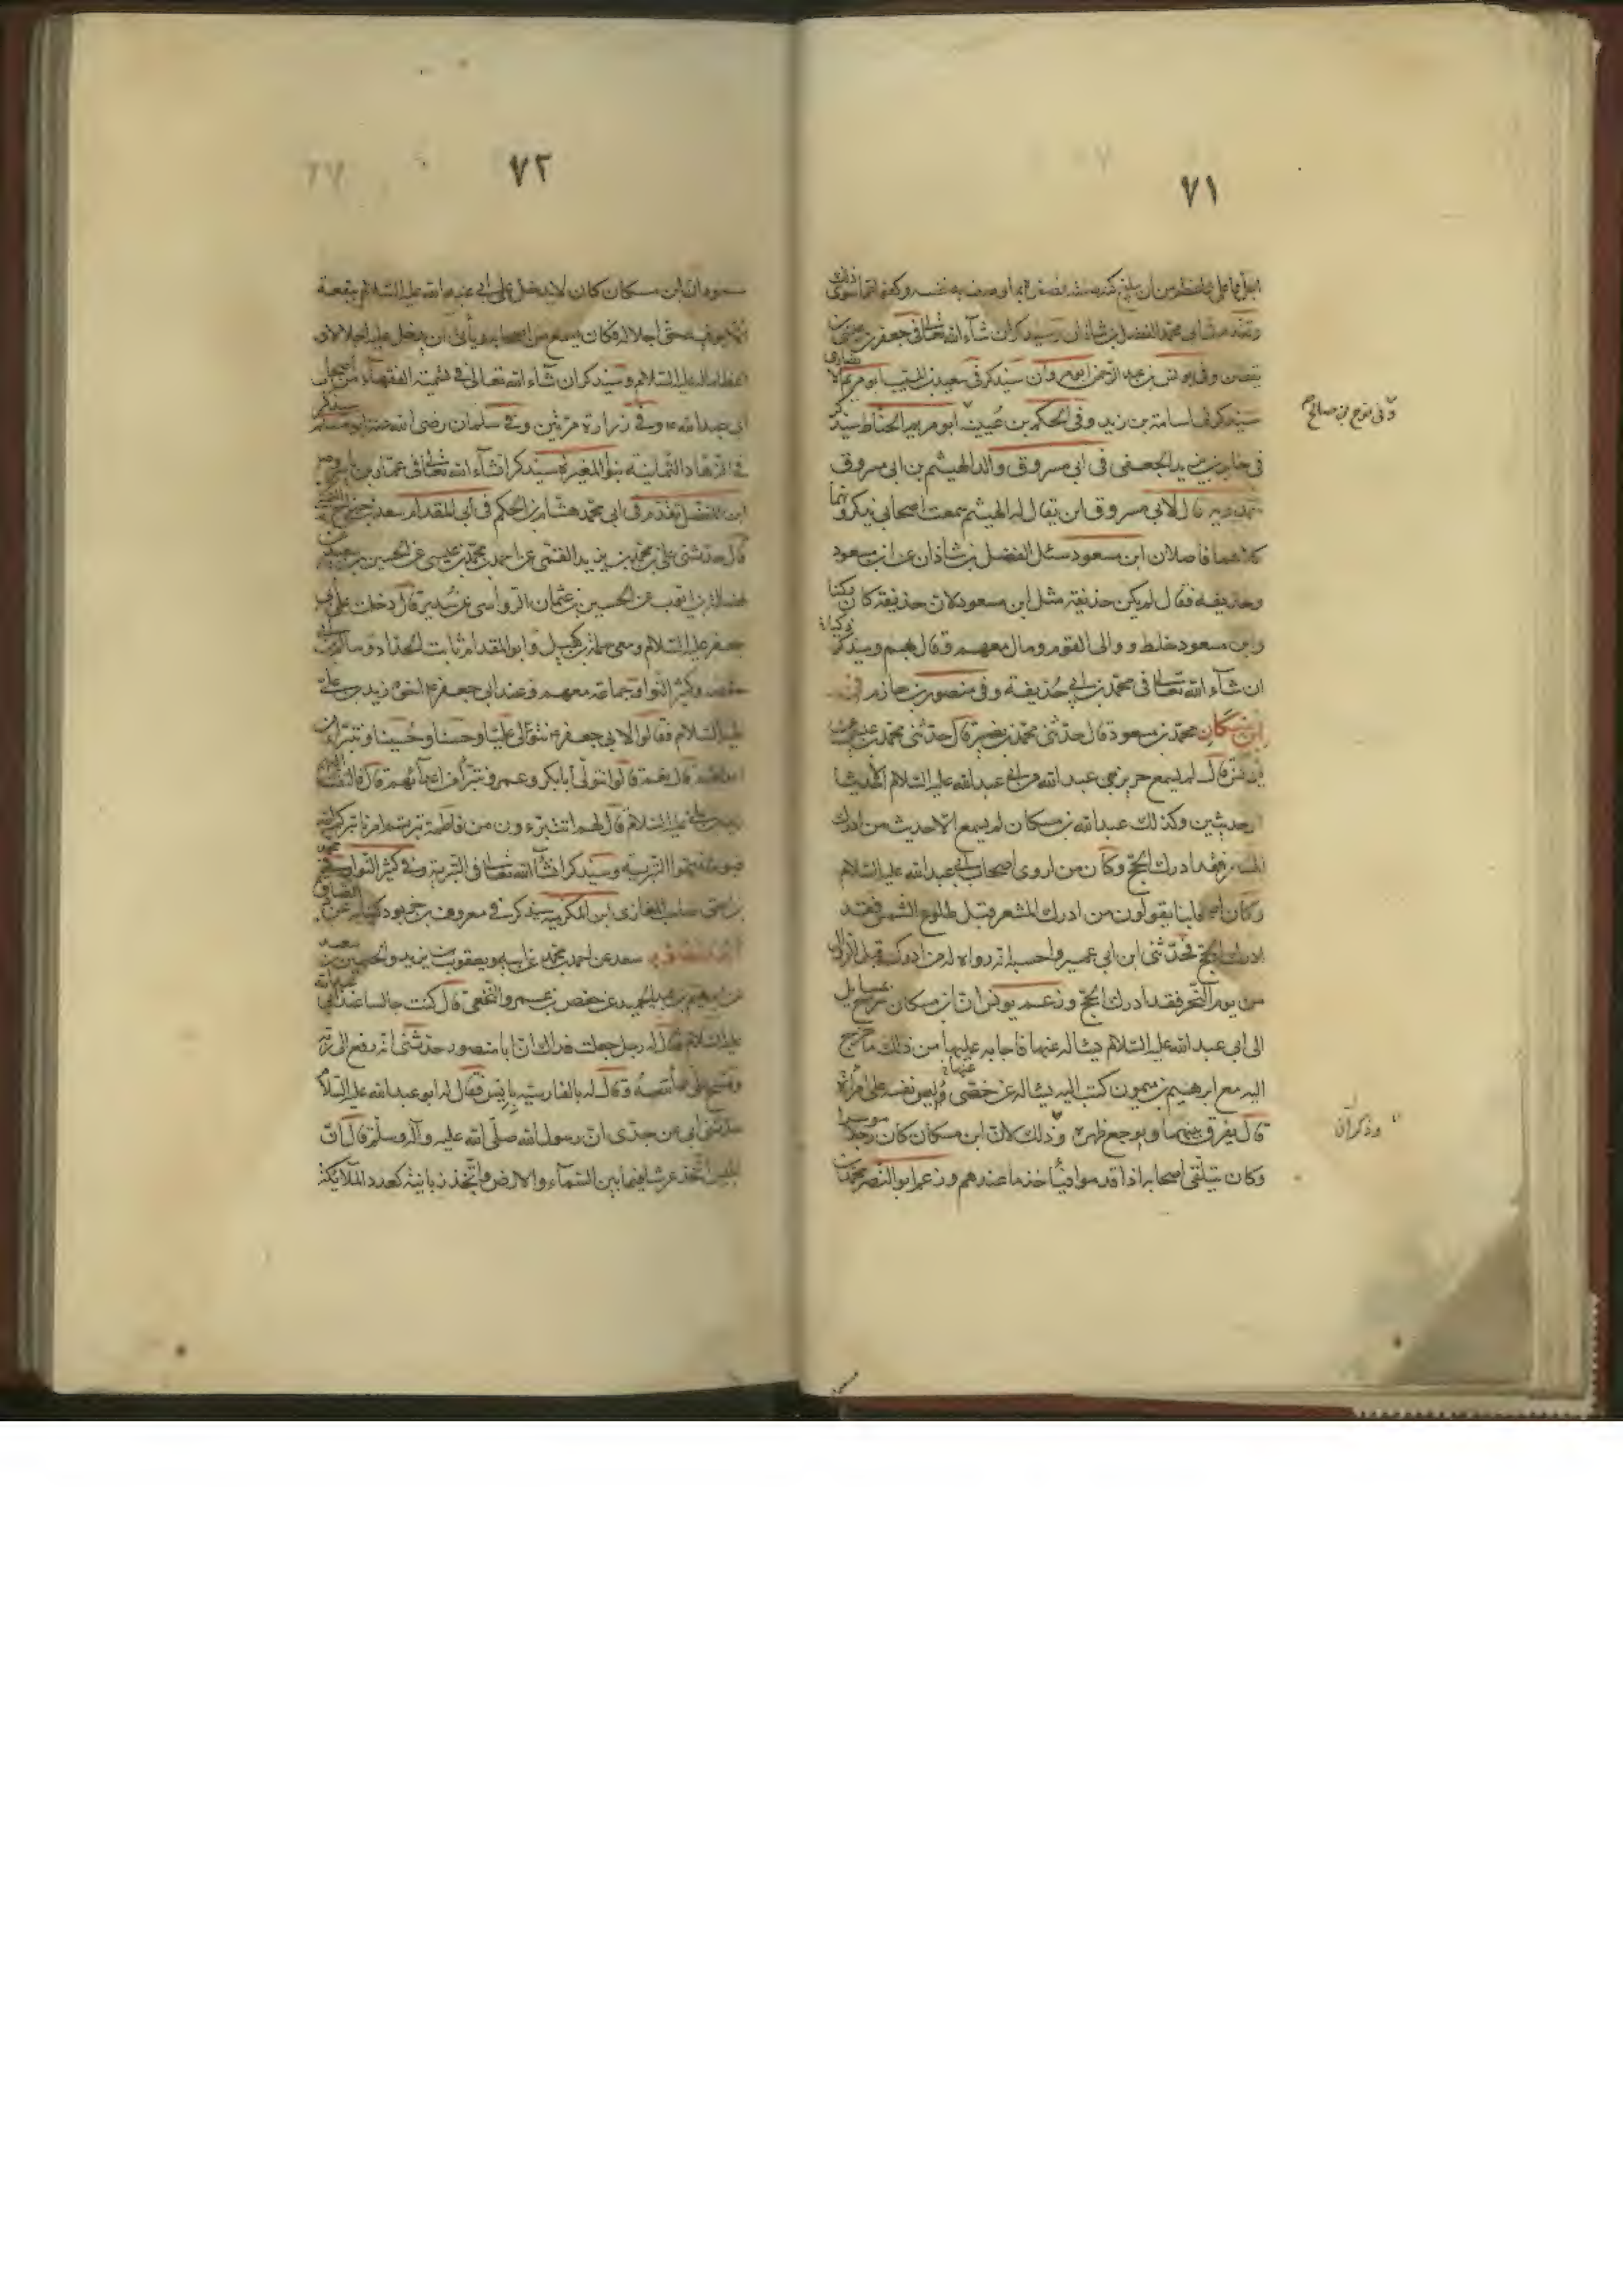 ٧١
وتقدم في ابى محمد الفضل بن شاذان وسيذكر ان شآء الله تعالى فى جعفر بن عيسى بن
يقطين وفى يونس بن عبد الرحمن ابو مروان سيذكر فى سعيد بن المسيب ابو مريم الانصارى
سيذكر فى اسامة بن زيد وفى الحكم بن عُيينه ابو مريم الحناط سيذكر
وفى نوح بن صالح
فى جابر بن يزيد الجعفى فى ابى مسروق والد الهيثم بن ابى مسروق
قال لابى مسروق ابن يقال له الهيثم سمعت اصحابى يذكرونهما
كلاهما فاضلان ابن مسعود سئل الفضل بن شاذان عن ابن مسعود
وحذيفه فقال لم يكن حذيفة مثل ابن مسعود لان حذيفة كان ركنا
وابن مسعود خلط ووالى القوم ومال معهم وقال بهم وسيذكر
ان شآء الله تعالى فى محمد بن ابى حُذيفة وفى منصور بن حازم
ابن مسكان محمد بن مسعود قال حدثنى محمد بن نصير قال حدثنى محمد بن عيسى عن
يونس قال لم يسمع حريز بن عبد الله من ابى عبد الله عليه السلام الا حديثا
او حديثين وكذلك عبد الله بن مسكان لم يسمع الا حديث من ادرك
المشعر فقد ادرك الحج وكان من اروى اصحاب ابى عبد الله عليه السلام
وكان اصحابنا يقولون من ادرك المشعر قبل طلوع الشمس فقد
ادرك الحج فحدثنى ابن ابى عمير واحسبه انه رواه له من ادركه قبل الزوال
من يوم النحر فقد ادرك الحج وزعم يونس ان ابن مسكان سرح بمسايل
الى ابى عبد الله عليه السلام يسئاله عنها فاجابه عليها من ذلك ما خرج
اليه مع ابرهيم بن ميمون كتب اليه يسئاله عن خصى دلس نفسه على امرأة
قال يفرق بينهما ويوجع ظهره وذلك لان ابن مسكان كان رجلا موسرا
وذكر ان
وكان يتلقى اصحابه اذا قدموا فيأخذ ما عندهم وزعم ابو النضر محمد بن
٧٢
مسعود ان ابن مسكان كان لا يدخل على ابى عبد الله عليه السلام شفقة
الا يوفيه حق اجلاله فكان يسمع من اصحابه ويأبى ان يدخل عليه اجلالا له و
اعظاما له عليه السلام وسيذكر ان شآء الله تعالى فى تسمية الفقهآء من اصحاب
ابى عبد الله ع وفى زرارة مرتين وفى سلمان رضى الله عنه ابو مسلم سيذكر
فى الزهاد الثمانية بنو المغيرة سيذكر انشآء الله تعالى فى عمار بن
ابن المفضل تقدم فى ابى محمد هشام بن الحكم فى ابى المقدام سعد بن
قال حدثنى على بن محمد بن يزيد القمى عن احمد بن محمد بن عيسى عن الحسين بن سعيد عن
فضالة بن ايوب عن الحسين بن عثمان الرواسى عن سُدير قال دخلت على ابى
جعفر عليه السلام ومعى سلمة بن كهيل وابو المقدام ثابت الحداد وسالم بن ابى
حفصه وكثير النوا وجماعة معهم وعند ابى جعفر ع اخوه زيد بن على
عليه السلام فقالوا لابى جعفر ع نتولى عليا وحسنا وحُسينا ونتبرأ من
اعدائهم قال نعم قالوا نتولى أبا بكر وعمر ونتبرأ من اعدآئهم قال فالتفت اليهم
زيد بن على عليه السلام قال لهم اتتبرءون من فاطمة بترتم امرنا بتركم الله
فيومئذ سموا البترية وسيذكر انشآ الله تعالى فى البترية وفى كثير النوا محمد
بن اسحق صاحب المغازى ابن المكرمية سيذكر فى معروف بن خربوذ
سعد عن احمد بن محمد عن ابيه ويعقوب بن يزيد والحسين بن سعيد
عن ابرهيم بن عبد الحميد عن حفص بن عمرو النخعى قال كنت جالسا عند ابى عبد الله
عليه السلام فقال له رجل جعلت فداك ان ابا منصور حدثنى انه رفع الى ربه
وتمسح على رأسه وقال له بالفارسية يا پسر فقال له ابو عبد الله عليه السلام
حدثنى ابى عن جدى ان رسول الله صلى الله عليه وآله وسلم قال ان
ابليس اتخذ عرشا فيما بين السمآء والارض واتخذ زبانية كعدد الملايكة